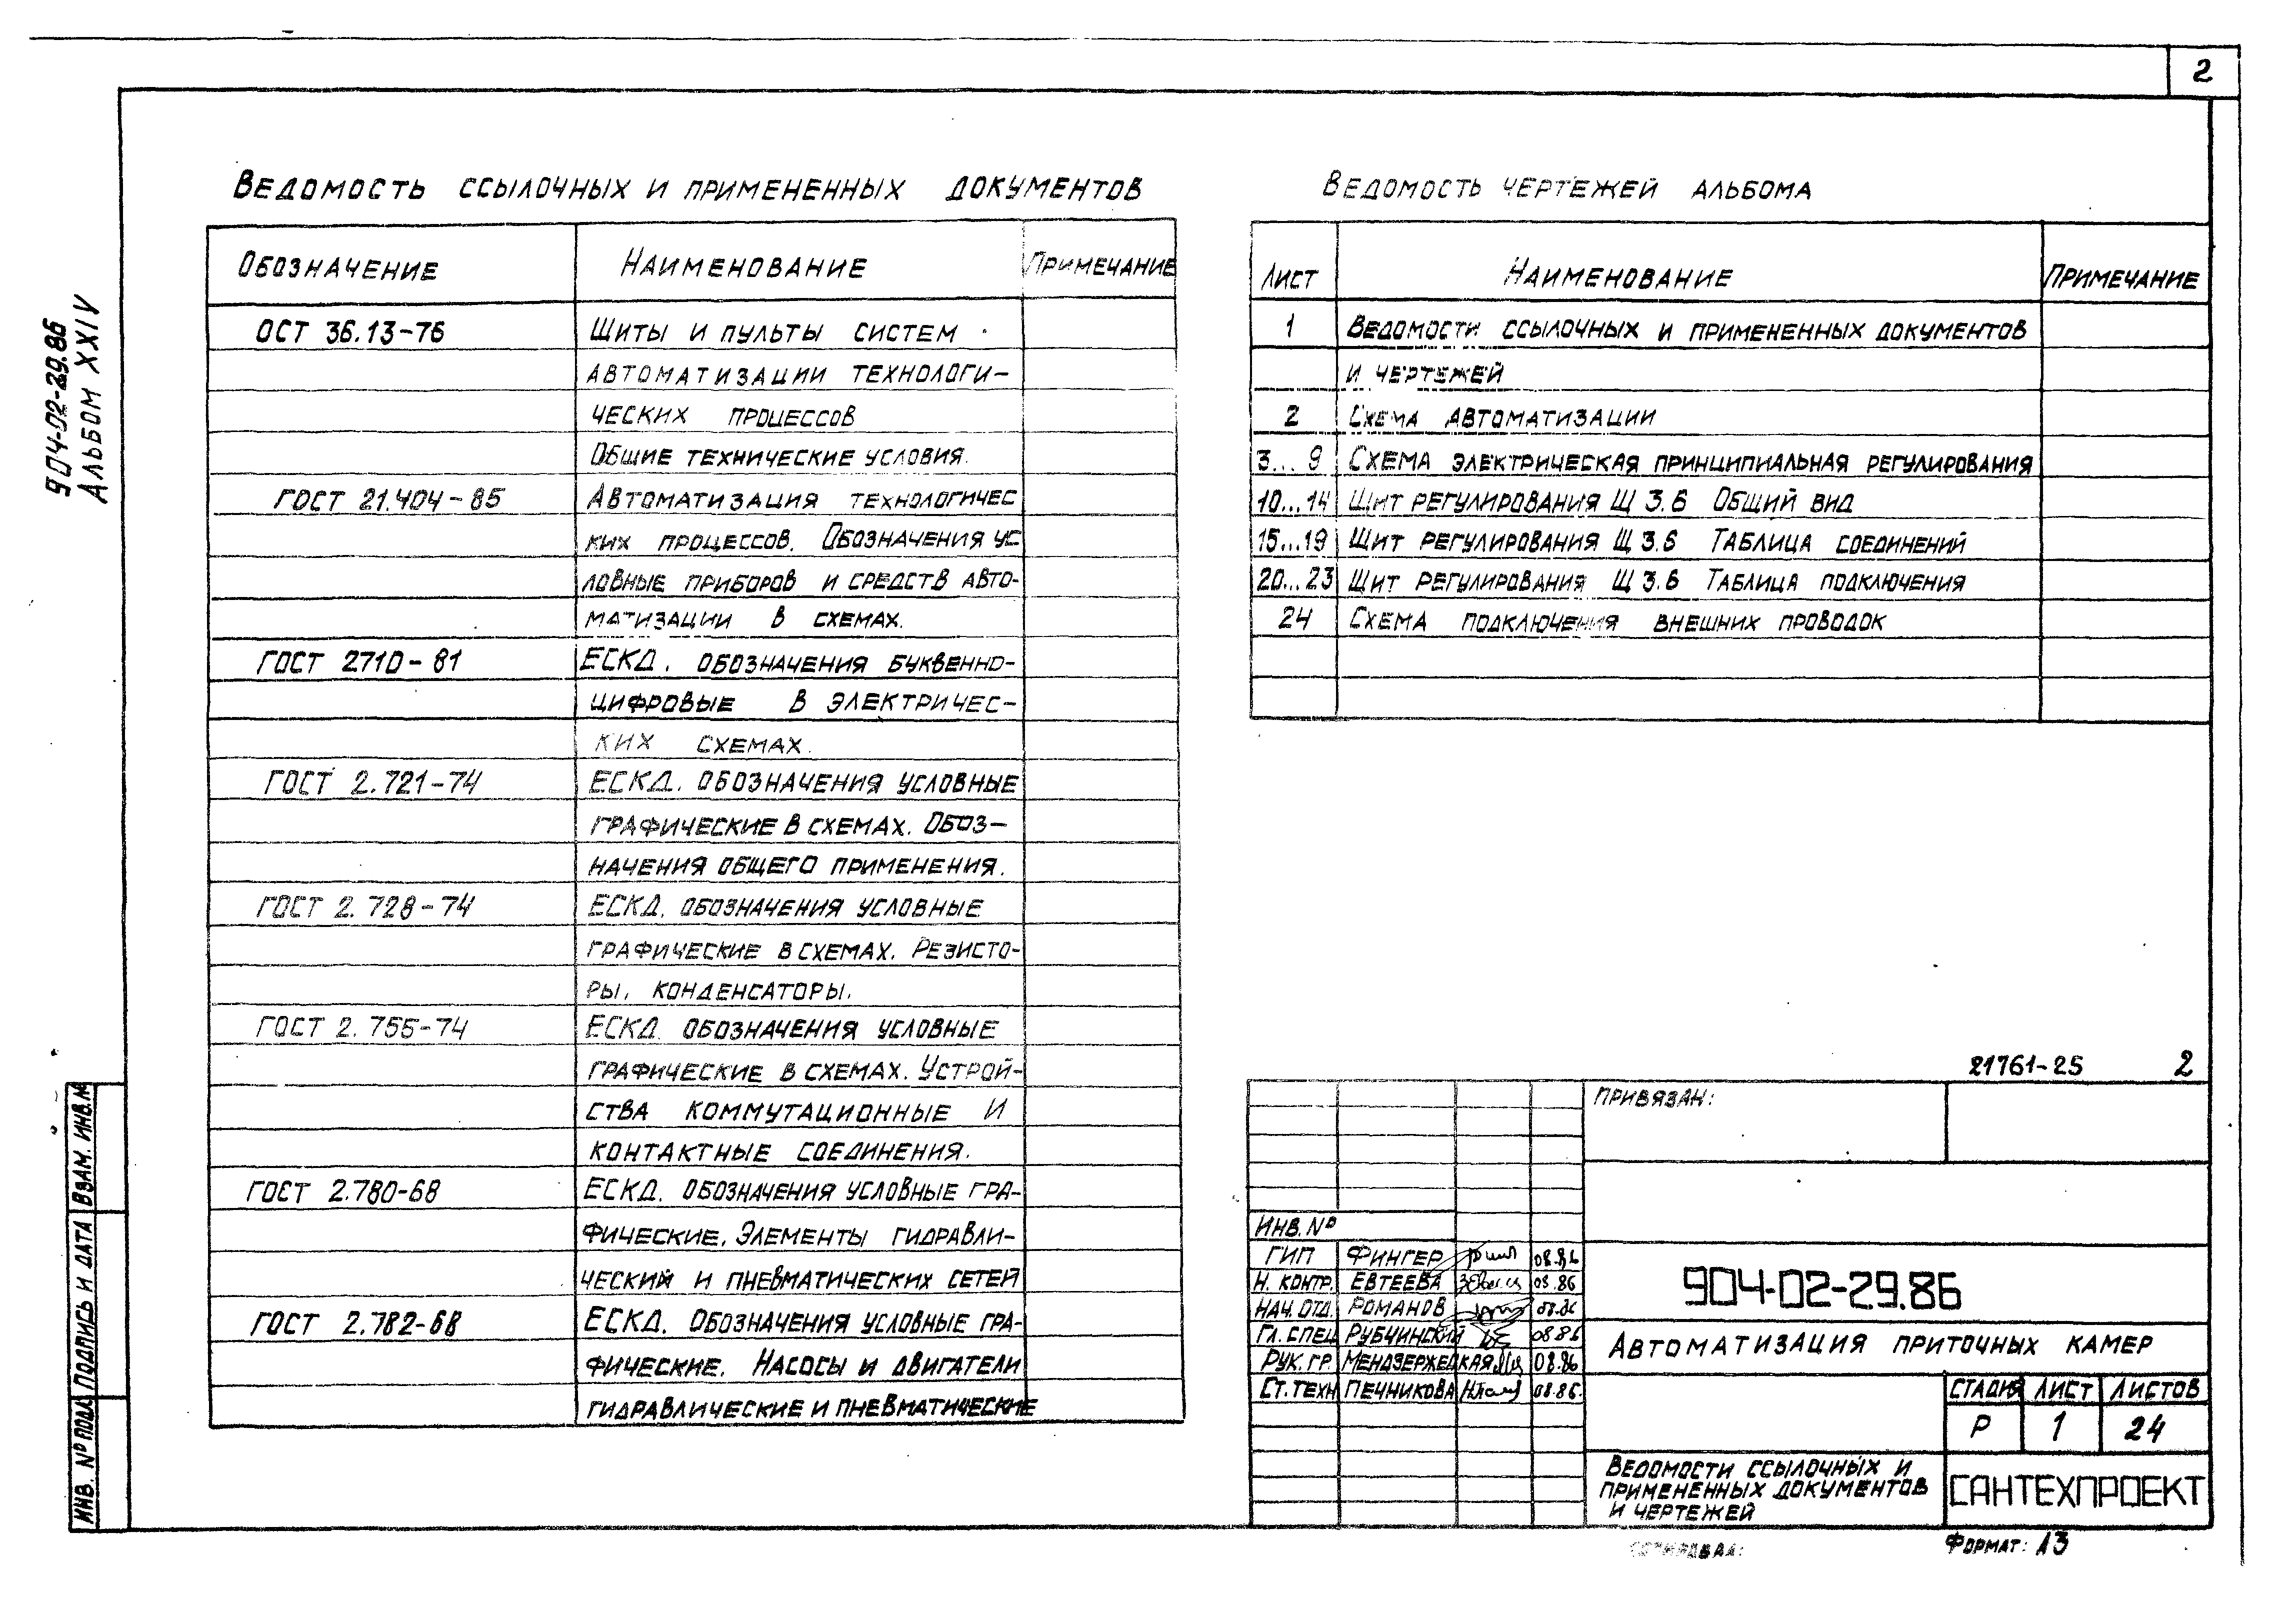 2
904-02-29.86
Альбом XXIV
Ведомость ссылочных и примененных документов
Обозначение Наименование Примечание
ОСТ 36.13-76 Щиты и пульты систем
автоматизации технологи-
ческих процессов
Общие технические условия.
ГОСТ 21.404-85 Автоматизация технологичес
ких процессов. Обозначения ус
ловные приборов и средств авто-
матизации в схемах.
ГОСТ 2710-81 ЕСКД. обозначения буквенно-
цифровые в электричес-
ких схемах.
ГОСТ 2.721-74 ЕСКД. обозначения условные
графические в схемах. Обоз-
начения общего применения.
ГОСТ 2.728-74 ЕСКД. обозначения условные
графические в схемах. Резисто-
ры, конденсаторы.
ГОСТ 2.755-74 ЕСКД. обозначения условные
графические в схемах. Устрой-
ства коммутационные и
контактные соединения.
ГОСТ 2.780-68 ЕСКД. обозначения условные гра-
фические. Элементы гидравли-
ческий и пневматических сетей
ГОСТ 2.782-68 ЕСКД. Обозначения условные гра-
фические. Насосы и двигатели
гидравлические и пневматические
Ведомость чертежей альбома
Лист Наименование Примечание
1 Ведомости ссылочных и примененных документов
и чертежей
2 Схема автоматизации
3...9 Схема электрическая принципиальная регулирования
10...14 Щит регулирования Щ 3.6 Общий вид
15...19 Щит регулирования Щ 3.6 Таблица соединений
20...23 Щит регулирования Щ 3.6 Таблица подключения
24 Схема подключения внешних проводок
21761-25 2
Привязан:
Инв. №
ГИП Фингер 08.86
Н. контр. Евтеева 08.86
Нач. отд. Романов 08.86
Гл. спец Рубчинский 08.86
Рук. гр. Мендзержецкая 08.86
Ст. техн Печникова 08.86.
904-02-29.86
Автоматизация приточных камер
Стадия Лист Листов
Р 1 24
Ведомости ссылочных и
примененных документов
и чертежей
САНТЕХПРОЕКТ
Копировал:
Формат: А3
Взам. инв. №
Подпись и дата
Инв. № подл